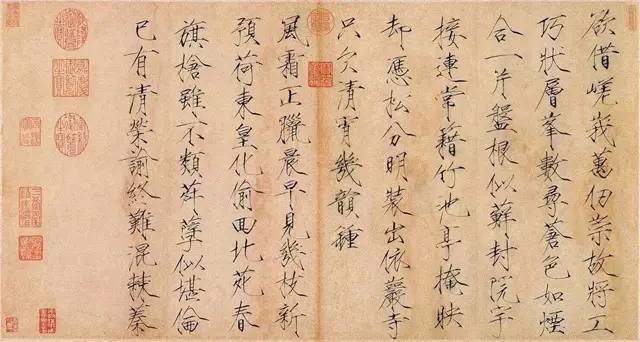 欲借嵯峨萬仞崇故將工
巧狀層峯數尋蒼色如煙
合一片盤根似蘚封院宇
接連常籍竹池亭掩映
却憑松分明裝出依巖寺
只欠清宵幾韻鍾
風霜正臘晨早見幾枝新
預荷東皇化偷囬北苑春
旗槍雖不類孽似堪倫
已有清榮諭終難混棘蓁